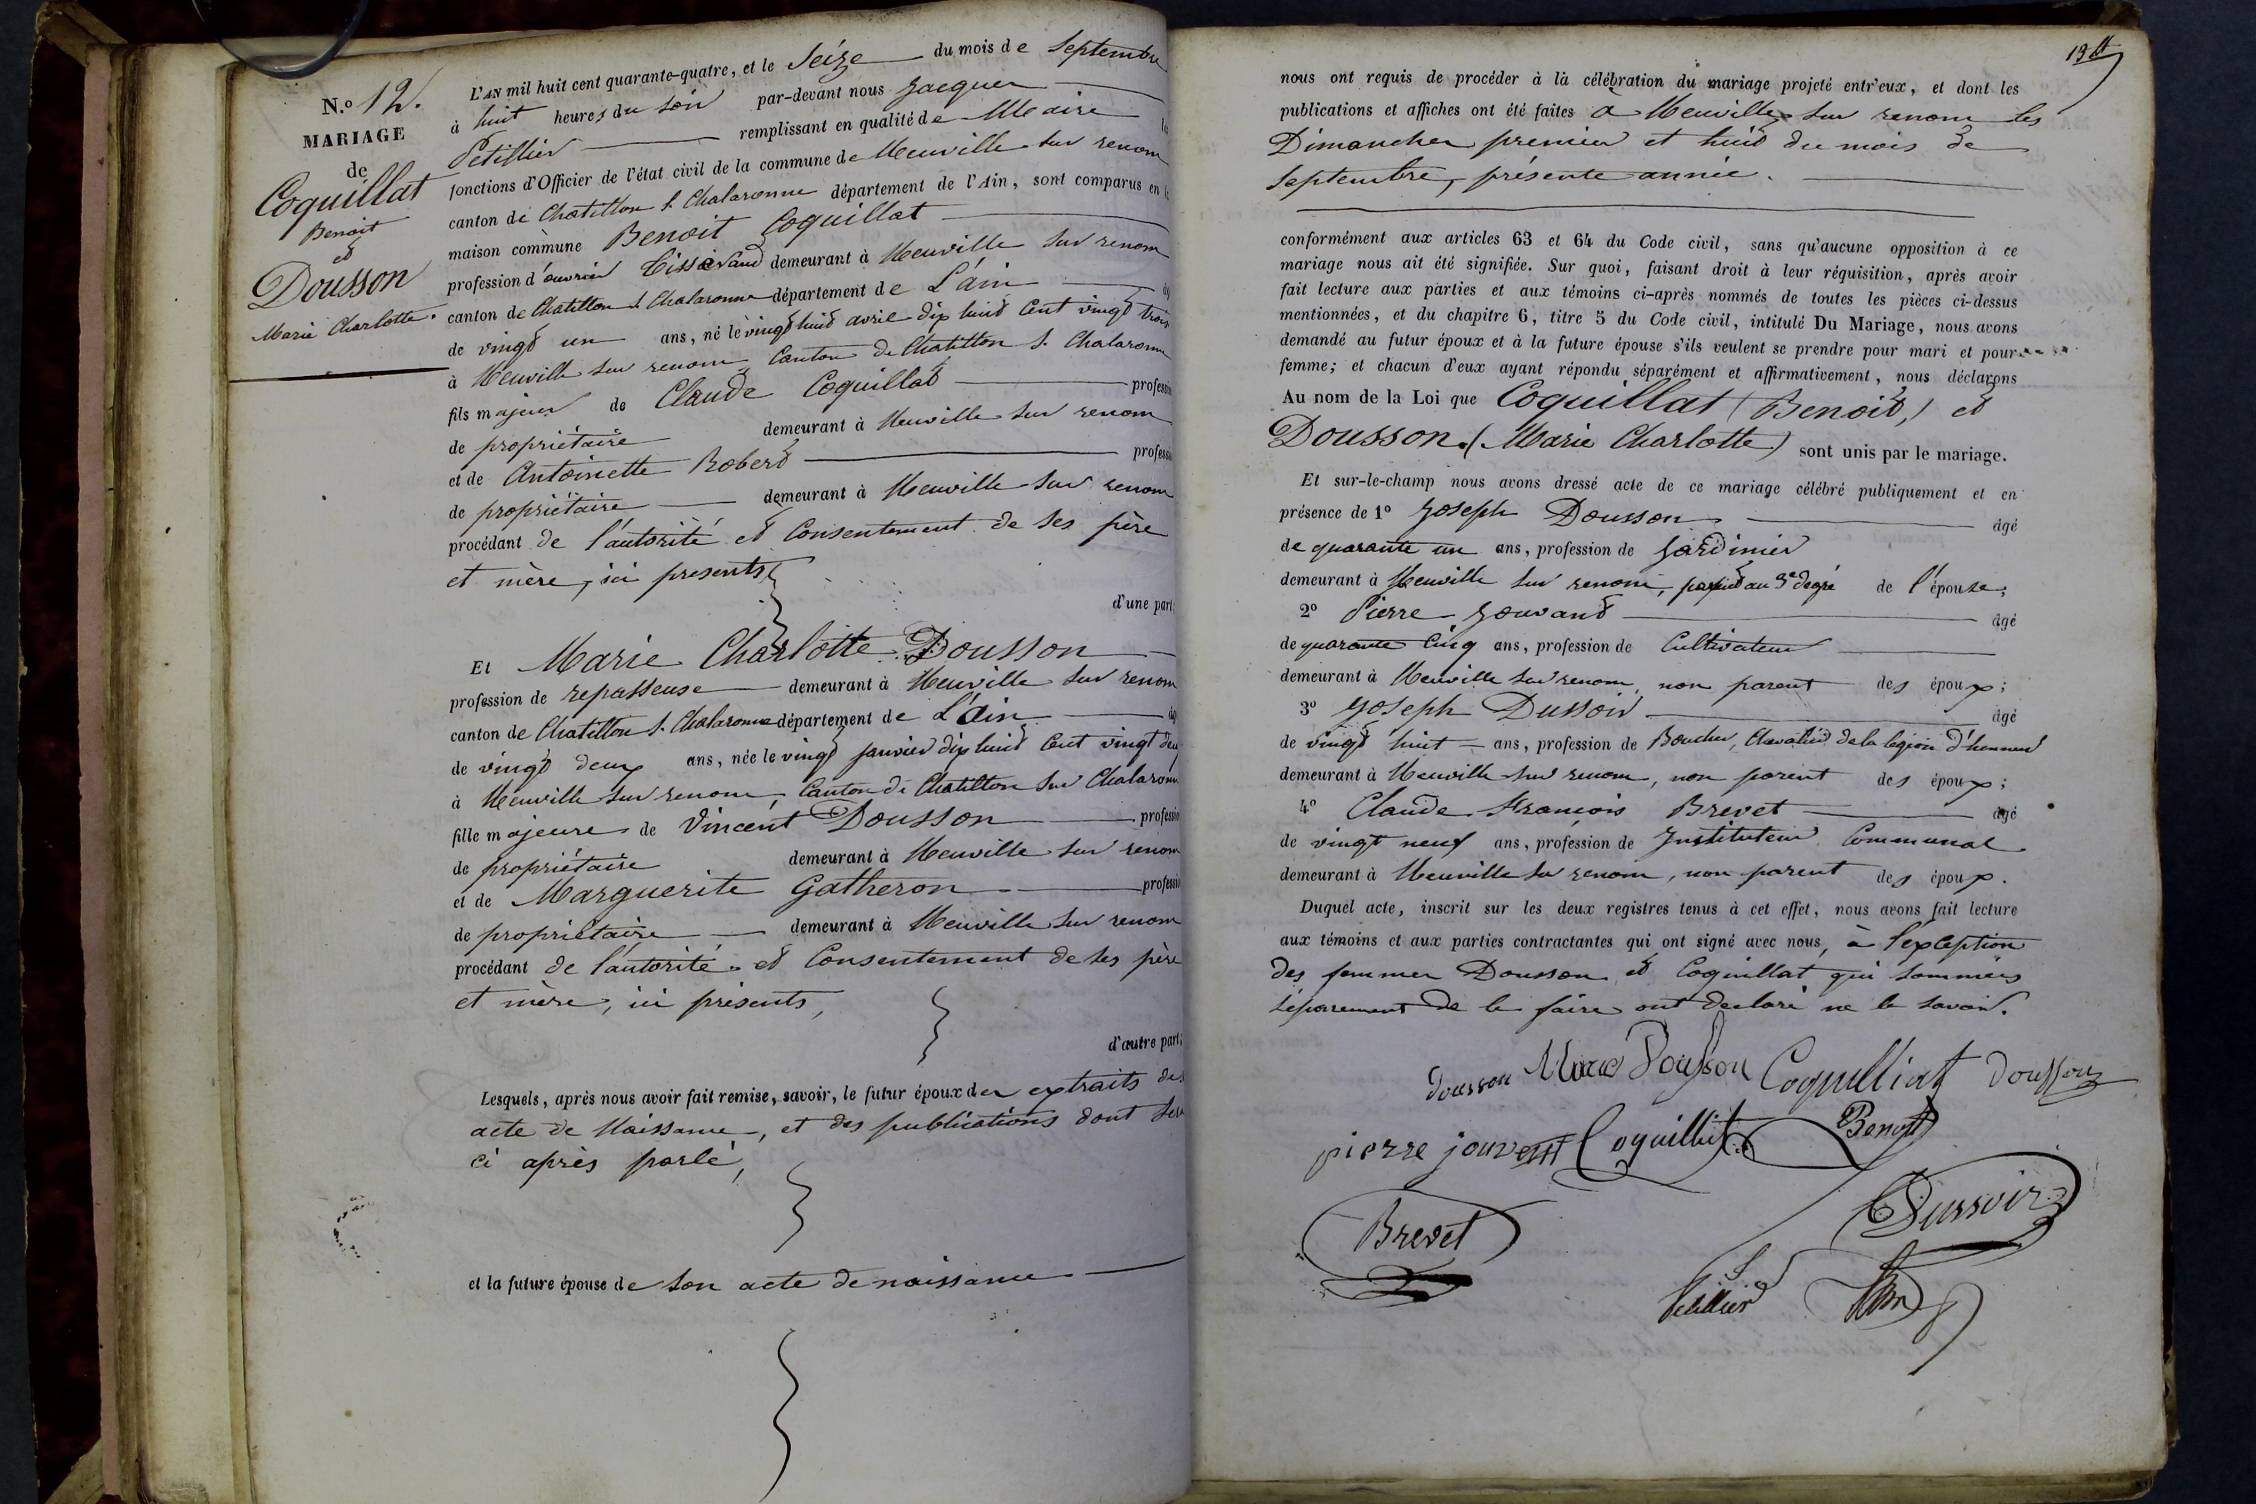 N.o 12.
MARIAGE
de
Coquillat
Benoit
et
Dousson
Marie Charlotte.
L'AN mil huit cent quarante-quatre, et le seize du mois de septembre
à huit heures du soir par-devant nous Jacques
Petillier remplissant en qualité de Maire les
fonctions d'Officier de l'état civil de la commune de Neuville sur renom
canton de Chatillon s. Chalaronne département de l'Ain, sont comparus en la
maison commune Benoit Coquillat
profession d'ouvrier Tisserand demeurant à Neuville sur renom
canton de Chatillon s. Chalaronne département de L'ain âg
de vingt un ans, né le vingt huit avril dix huit cent vingt trois
à Neuville sur renom, Canton de Chatillon s. Chalaronne
fils majeur de Claude Coquillat profession
de propriétaire demeurant à Neuville sur renom
et de Antoinette Robert profession
de propriétaire demeurant à Neuville sur renom
procédant de l'autorité et Consentement de ses père
et mère, ici présents,
d'une part;
Et Marie Charlotte Dousson
profession de repasseuse demeurant à Neuville sur renom
canton de Chatillon s. Chalaronne département de L'Ain âg
de vingt deux ans, née le vingt janvier dix huit Cent vingt deux
à Neuville sur renom, Canton de Chatillon sur Chalaronne
fille majeure de Vincent Dousson profession
de propriétaire demeurant à Neuville sur renom
et de Marguerite Gatheron profession
de propriétaire demeurant à Neuville sur renom
procédant de l'autorité et Consentement de ses père
et mère, ici présents,
d'autre part;
Lesquels, après nous avoir fait remise, savoir, le futur époux des extraits des
acte de Naissance, et des publications dont sera
ci après parlé,
et la future épouse de son acte de naissance
19
nous ont requis de procéder à la célébration du mariage projeté entr'eux, et dont les
publications et affiches ont été faites à Neuville sur renom les
Dimanches premier et huit du mois de
septembre, présente année.
conformément aux articles 63 et 64 du Code civil, sans qu'aucune opposition à ce
mariage nous ait été signifiée. Sur quoi, faisant droit à leur réquisition, après avoir
fait lecture aux parties et aux témoins ci-après nommés de toutes les pièces ci-dessus
mentionnées, et du chapitre 6, titre 5 du Code civil, intitulé Du Mariage, nous avons
demandé au futur époux et à la future épouse s'ils veulent se prendre pour mari et pour
femme; et chacun d'eux ayant répondu séparément et affirmativement, nous déclarons
Au nom de la Loi que Coquillat (Benoit,) et
Dousson. (Marie Charlotte) sont unis par le mariage.
Et sur-le-champ nous avons dressé acte de ce mariage célébré publiquement et en
présence de 1o Joseph Dousson âgé
de quarante un ans, profession de Jardinier
demeurant à Neuville sur renom, parent au 3e degré de l'épouse;
2o Pierre Jouvant âgé
de quarante Cinq ans, profession de Cultivateur
demeurant à Neuville sur renom, non parent des époux;
3o Joseph Dussoir âgé
de vingt huit ans, profession de Boucher, Chevalier de la légion d'honneur
demeurant à Neuville sur renom, non parent des époux;
4o Claude François Brevet âgé
de vingt neuf ans, profession de Instituteur Communal
demeurant à Neuville sur renom, non parent des époux.
Duquel acte, inscrit sur les deux registres tenus à cet effet, nous avons fait lecture
aux témoins et aux parties contractantes qui ont signé avec nous, à l'exception
des femmes Dousson et Coquillat qui sommées
séparement de le faire ont déclaré ne le savoir.
dousson Marie Dousson Coquilliat Dousson
pierre jouvent Coquillat Benoit
Brevet Dussoir
Petillier